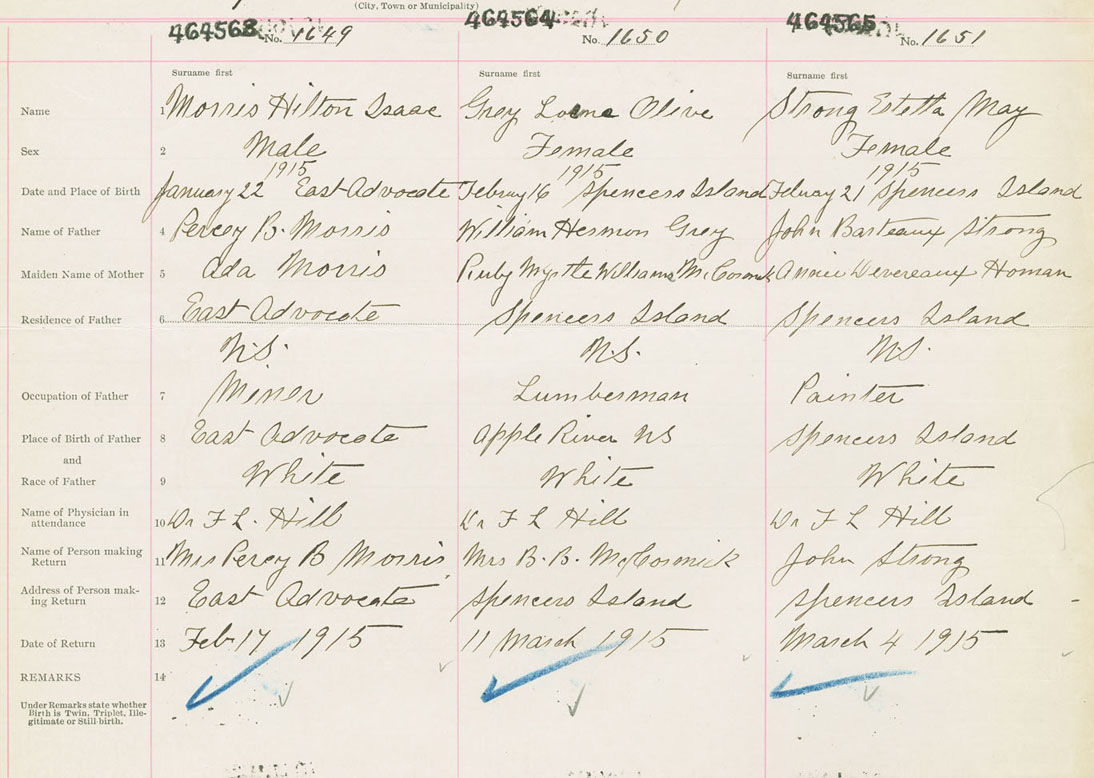 (City, Town or Municipality)
464563 No. 1649 464564 No. 1650 464565 No. 1651
Surname first Surname first Surname first
Name 1 Morris Hilton Isaac Grey Olive Strong Estella May
Sex 2 Male Female Female
1915 1915 1915
Date and Place of Birth January 22 East Advocate Februry 16 Spencers Island 21 Spencers Island
Name of Father 4 Percy B. Morris William Hermon Grey John Barteaux Strong
Maiden Name of Mother 5 Ada Morris Ruby Myrtle Williams McCormick Annie Devereaux Homan
Residence of Father 6 East Advocate Spencers Island Spencers Island
N.S. N.S. N.S.
Occupation of Father 7 Miner Lumberman Painter
Place of Birth of Father 8 East Advocate Apple River NS Spencers Island
and
Race of Father 9 White White White
Name of Physician in attendance 10 Dr F L. Hill Dr F L Hill Dr F L Hill
Name of Person making Return 11 Mrs Percy B Morris Mrs B. B. McCormick John Strong
Address of Person making Return 12 East Advocate Spencers Island Spencers Island -
Date of Return 13 Feb 17 1915 11 March 1915 March 4 1915
REMARKS 14
Under Remarks state whether
Birth is Twin, Triplet, Ille-
gitimate or Still-birth.